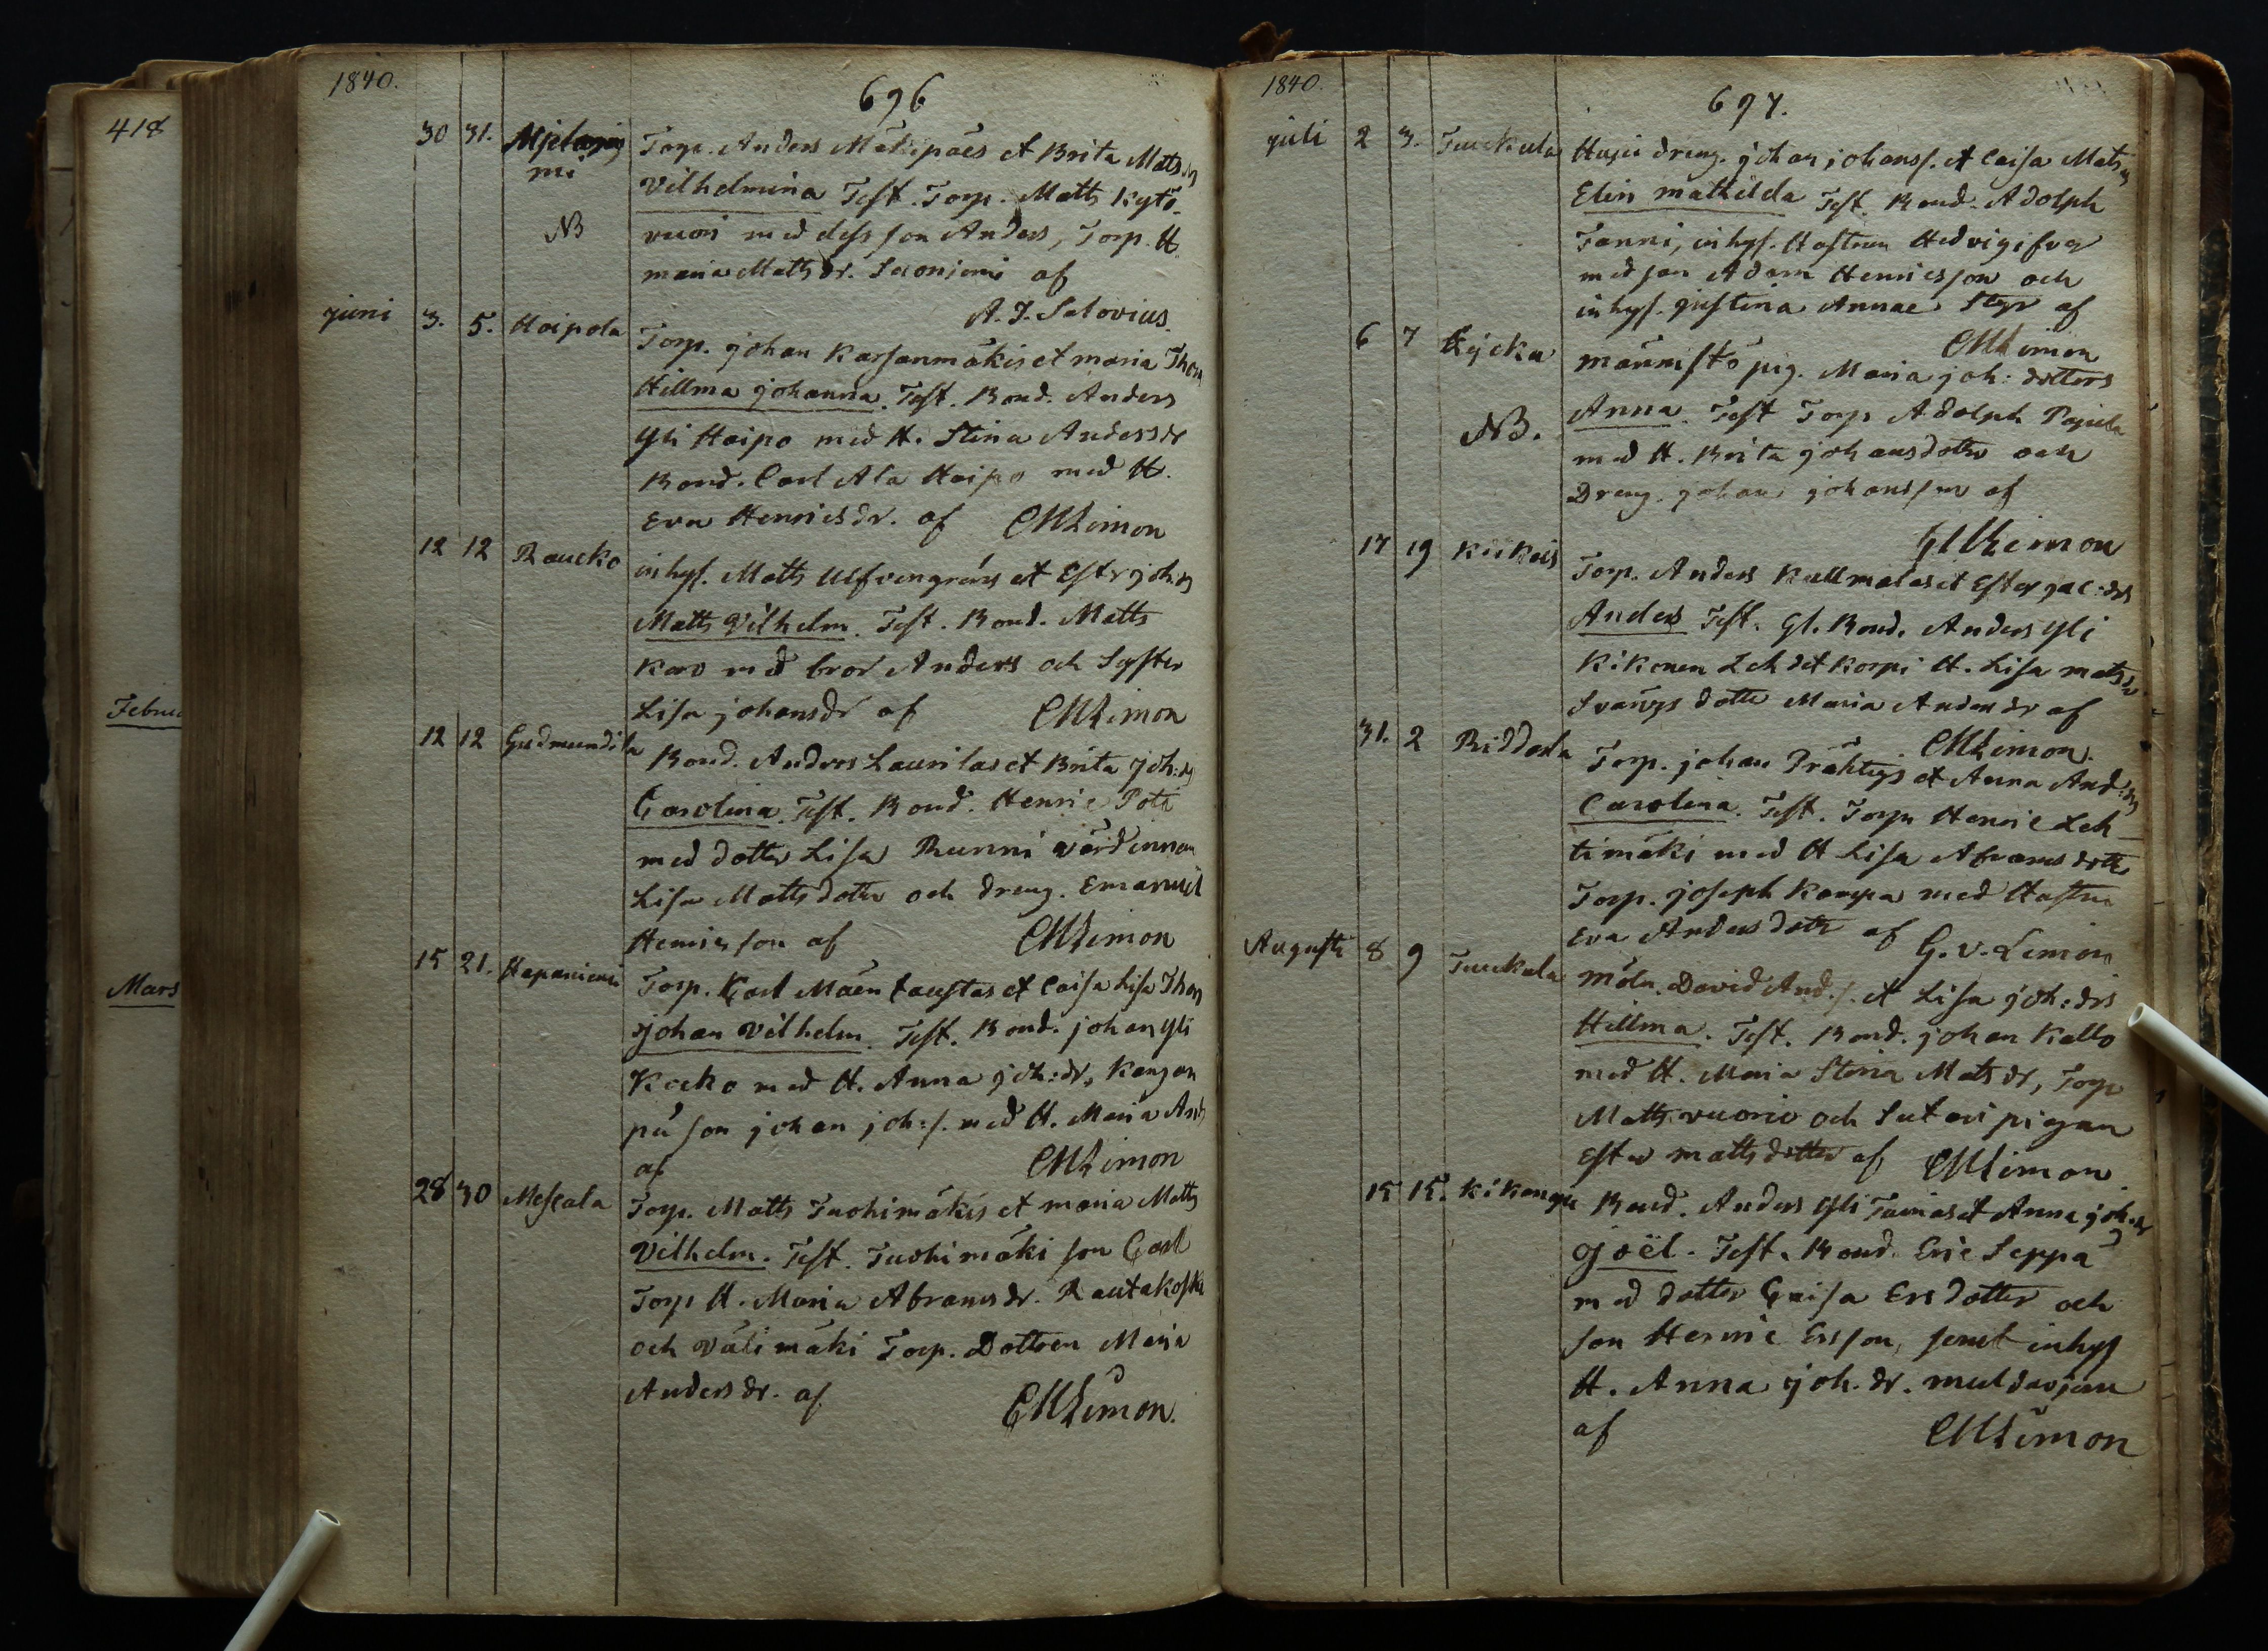 418
Februa
Mars
1840.
696
30 31. Mjelonie
mi
NB
Torp. Anders Mäkipäes et Brita Matsdr
Vilhelmina Test. Torp. Matts Kytö-
vuori med dess son Anders, Torp. H.
maria Mattsdr. Suoniemi af
A. J. Salovius.
juni 3. 5. Hoipola
Torp. johan Karsanmäkis et maria Thom
Hillma johanna. Test. Bond. Anders
Yli Hoipo med H. Stina Andersdr
Bond. Carl Ala Hoipo med H.
Eva Henricsdr. af CMLimon
12 12 Raucko
inhys. Matts Ulfvengréns et Estr joh:ds
Matts Vilhelm. Test. Bond. Matts
Karo med bror Anders och Syster
Lisa johansdr af CMLimon
12 12 Gudmundila
Bond. Anders Laurilas et Brita joh:ds
Carolina. Test. Bond. Henric Poti
med dotter Lisa Runni värdinnan
Lisa Mattsdotter och dreng. Emanuel
Henricsson af CMLimon
15 21. Hapaniemi
Torp. Carl Mäentaustas et Caisa Lisa Thom
johan Vilhelm. Test. Bond. johan Yli
Kocko med H. Anna joh:dr, Kangan
pä son johan joh:s. med H. Maria Ands
af CMLimon
28 30 Mescala
Torp. Matts Tuohimäkis et maria Matts
Vilhelm. Test. Tuohimäki son Carl
Torp H. Maria Abramsdr. Rautakoski
och Välimäki Torp. Dottren Maria
Andersdr. af CMLimon.
1840.
697.
juli 2 3. Turckula
Husu dreng. johan johans s. et Caisa Mats
Elin mathilda Test. Bond. Adolph
Tanni, inhys. Hustrun Hedvig
med son Adam Henricsson och
inhys. justina Annae af
CMLimon
6 7 Kycku
NB.
männistö pig. Maria joh: dotters
Anna. Test Torp Adolph Pajula
med H. Brita johansdotter och
Dreng. johan johansson af
CMLimon
17 19 Kiikois
Torp. Anders Kullmalas et Ester jac:drs
Anders Test. Gl. Bond. Anders Yli
Kikonen Lehdet Korpi H. Lisa matsdr
Svärys dotter Maria Andersdr af
CMLimon.
31. 2 Riddala
Torp. johan Prähtigs et Anna And:drs
Carolina. Test. Torp Henric Leh-
timäki med H Lisa Abramsdotter
Torp. joseph Kampa med Hustru
Eva Andersdotter af G. v. Limon
Augusti 8 9 Turckula
möln. David And.s. et Lisa joh:drs
Hillma. Test. Bond. johan Kallo
med H. Maria Stina Matsdr, Torp
Matts vuorio och Sutari pigan
Ester mattsdotter af CMLimon.
15 15.
Bond. Anders Yli Tainas et Anna joh:dr
joël. Test. Bond. Eric Seppä
med dotter Caisa Ersdotter och
son Henric Ersson, samt inhys
H. Anna joh.dr. muldarjan
af CMLimon